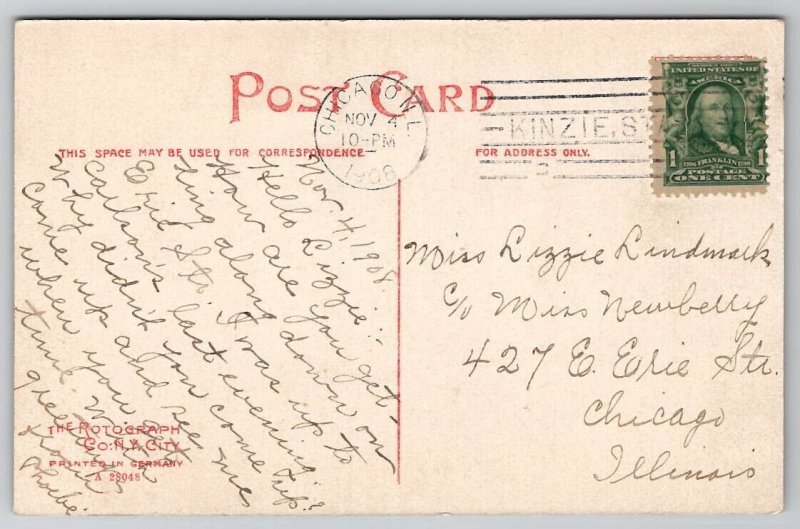 POST CARD
CHICAGO, ILL.
NOV 4
10-PM
1908
KINZIE, STA
UNITED STATES OF
AMERICA
1 FRANKLIN 1
POSTAGE
ONE CENT
THIS SPACE MAY BE USED FOR CORRESPONDENCE
FOR ADDRESS ONLY.
Nov. 4, 1908.
Hello Lizzie:-
How are you get-
ting along down on
Erie Str. I was up to
Carlson's last evening
Why didn't you come up?
Come up and see me
when you get
time. With
greetings
from
Phoebe
Miss Lizzie Lindmark
c/o Miss Newberry
427 E. Erie Str.
Chicago
Illinois
THE ROTOGRAPH
CO. N.Y. CITY
PRINTED IN GERMANY
A 28048